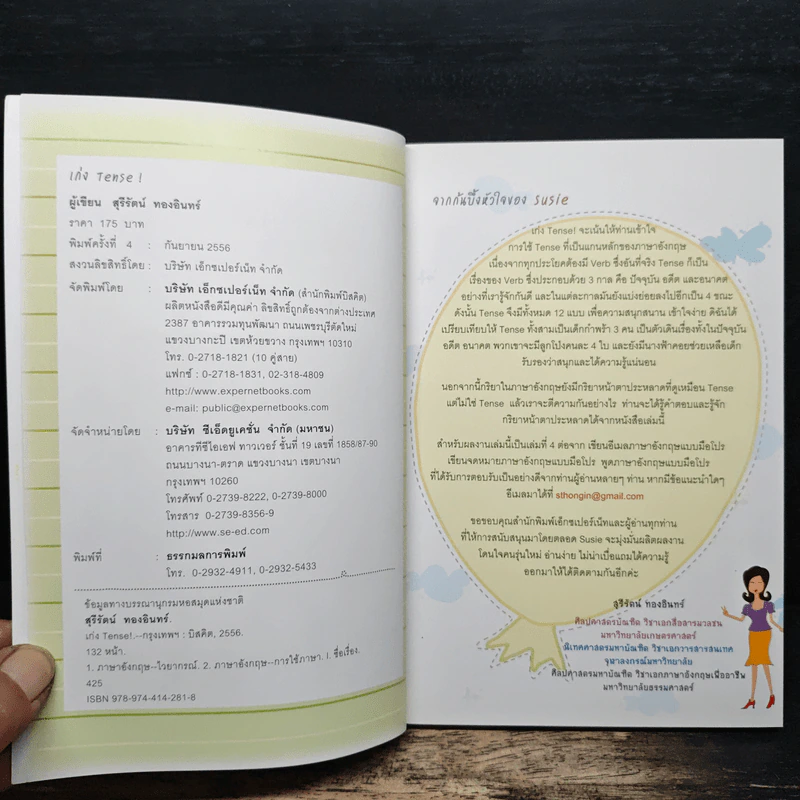 เก่ง Tense !
ผู้เขียน สุรีรัตน์ ทองอินทร์
ราคา 175 บาท
พิมพ์ครั้งที่ 4 : กันยายน 2556
สงวนลิขสิทธิ์โดย : บริษัท เอ็กซเปอร์เน็ท จำกัด
จัดพิมพ์โดย : บริษัท เอ็กซเปอร์เน็ท จำกัด (สำนักพิมพ์บิสคิต)
ผลิตหนังสือดีมีคุณค่า ลิขสิทธิ์ถูกต้องจากต่างประเทศ
2387 อาคารรวมทุนพัฒนา ถนนเพชรบุรีตัดใหม่
แขวงบางกะปิ เขตห้วยขวาง กรุงเทพฯ 10310
โทร. 0-2718-1821 (10 คู่สาย)
แฟกซ์ : 0-2718-1831, 02-318-4809
http://www.expernetbooks.com
e-mail: public@expernetbooks.com
จัดจำหน่ายโดย : บริษัท ซีเอ็ดยูเคชั่น จำกัด (มหาชน)
อาคารทีซีไอเอฟ ทาวเวอร์ ชั้นที่ 19 เลขที่ 1858/87-90
ถนนบางนา-ตราด แขวงบางนา เขตบางนา
กรุงเทพฯ 10260
โทรศัพท์ 0-2739-8222, 0-2739-8000
โทรสาร 0-2739-8356-9
http://www.se-ed.com
พิมพ์ที่ : ธรรกมลการพิมพ์
โทร. 0-2932-4911, 0-2932-5433
ข้อมูลทางบรรณานุกรมหอสมุดแห่งชาติ
สุรีรัตน์ ทองอินทร์.
เก่ง Tense!.--กรุงเทพฯ : บิสคิต, 2556.
132 หน้า.
1. ภาษาอังกฤษ--ไวยากรณ์. 2. ภาษาอังกฤษ--การใช้ภาษา. I. ชื่อเรื่อง.
425
ISBN 978-974-414-281-8
จากก้นบึ้งหัวใจของ Susie
เก่ง Tense! จะเน้นให้ท่านเข้าใจ
การใช้ Tense ที่เป็นแกนหลักของภาษาอังกฤษ
เนื่องจากทุกประโยคต้องมี Verb ซึ่งอันที่จริง Tense ก็เป็น
เรื่องของ Verb ซึ่งประกอบด้วย 3 กาล คือ ปัจจุบัน อดีต และอนาคต
อย่างที่เรารู้จักกันดี และในแต่ละกาลมันยังแบ่งย่อยลงไปอีกเป็น 4 ขณะ
ดังนั้น Tense จึงมีทั้งหมด 12 แบบ เพื่อความสนุกสนาน เข้าใจง่าย ดิฉันได้
เปรียบเทียบให้ Tense ทั้งสามเป็นเด็กกำพร้า 3 คน เป็นตัวเดินเรื่องทั้งในปัจจุบัน
อดีต อนาคต พวกเขาจะมีลูกโป่งคนละ 4 ใบ และยังมีนางฟ้าคอยช่วยเหลือเด็ก
รับรองว่าสนุกและได้ความรู้แน่นอน
นอกจากนี้กริยาในภาษาอังกฤษยังมีกริยาหน้าตาประหลาดที่ดูเหมือน Tense
แต่ไม่ใช่ Tense แล้วเราจะตีความกันอย่างไร ท่านจะได้รู้คำตอบและรู้จัก
กริยาหน้าตาประหลาดได้จากหนังสือเล่มนี้
สำหรับผลงานเล่มนี้เป็นเล่มที่ 4 ต่อจาก เขียนอีเมลภาษาอังกฤษแบบมือโปร
เขียนจดหมายภาษาอังกฤษแบบมือโปร พูดภาษาอังกฤษแบบมือโปร
ที่ได้รับการตอบรับเป็นอย่างดีจากท่านผู้อ่านหลายๆ ท่าน หากมีข้อแนะนำใดๆ
อีเมลมาได้ที่ sthongin@gmail.com
ขอขอบคุณสำนักพิมพ์เอ็กซเปอร์เน็ทและผู้อ่านทุกท่าน
ที่ให้การสนับสนุนมาโดยตลอด Susie จะมุ่งมั่นผลิตผลงาน
โดนใจคนรุ่นใหม่ อ่านง่าย ไม่น่าเบื่อแถมได้ความรู้
ออกมาให้ได้ติดตามกันอีกค่ะ
สุรีรัตน์ ทองอินทร์
ศิลปศาสตรบัณฑิต วิชาเอกสื่อสารมวลชน
มหาวิทยาลัยเกษตรศาสตร์
นิเทศศาสตรมหาบัณฑิต วิชาเอกวารสารสนเทศ
จุฬาลงกรณ์มหาวิทยาลัย
ศิลปศาสตรมหาบัณฑิต วิชาเอกภาษาอังกฤษเพื่ออาชีพ
มหาวิทยาลัยธรรมศาสตร์